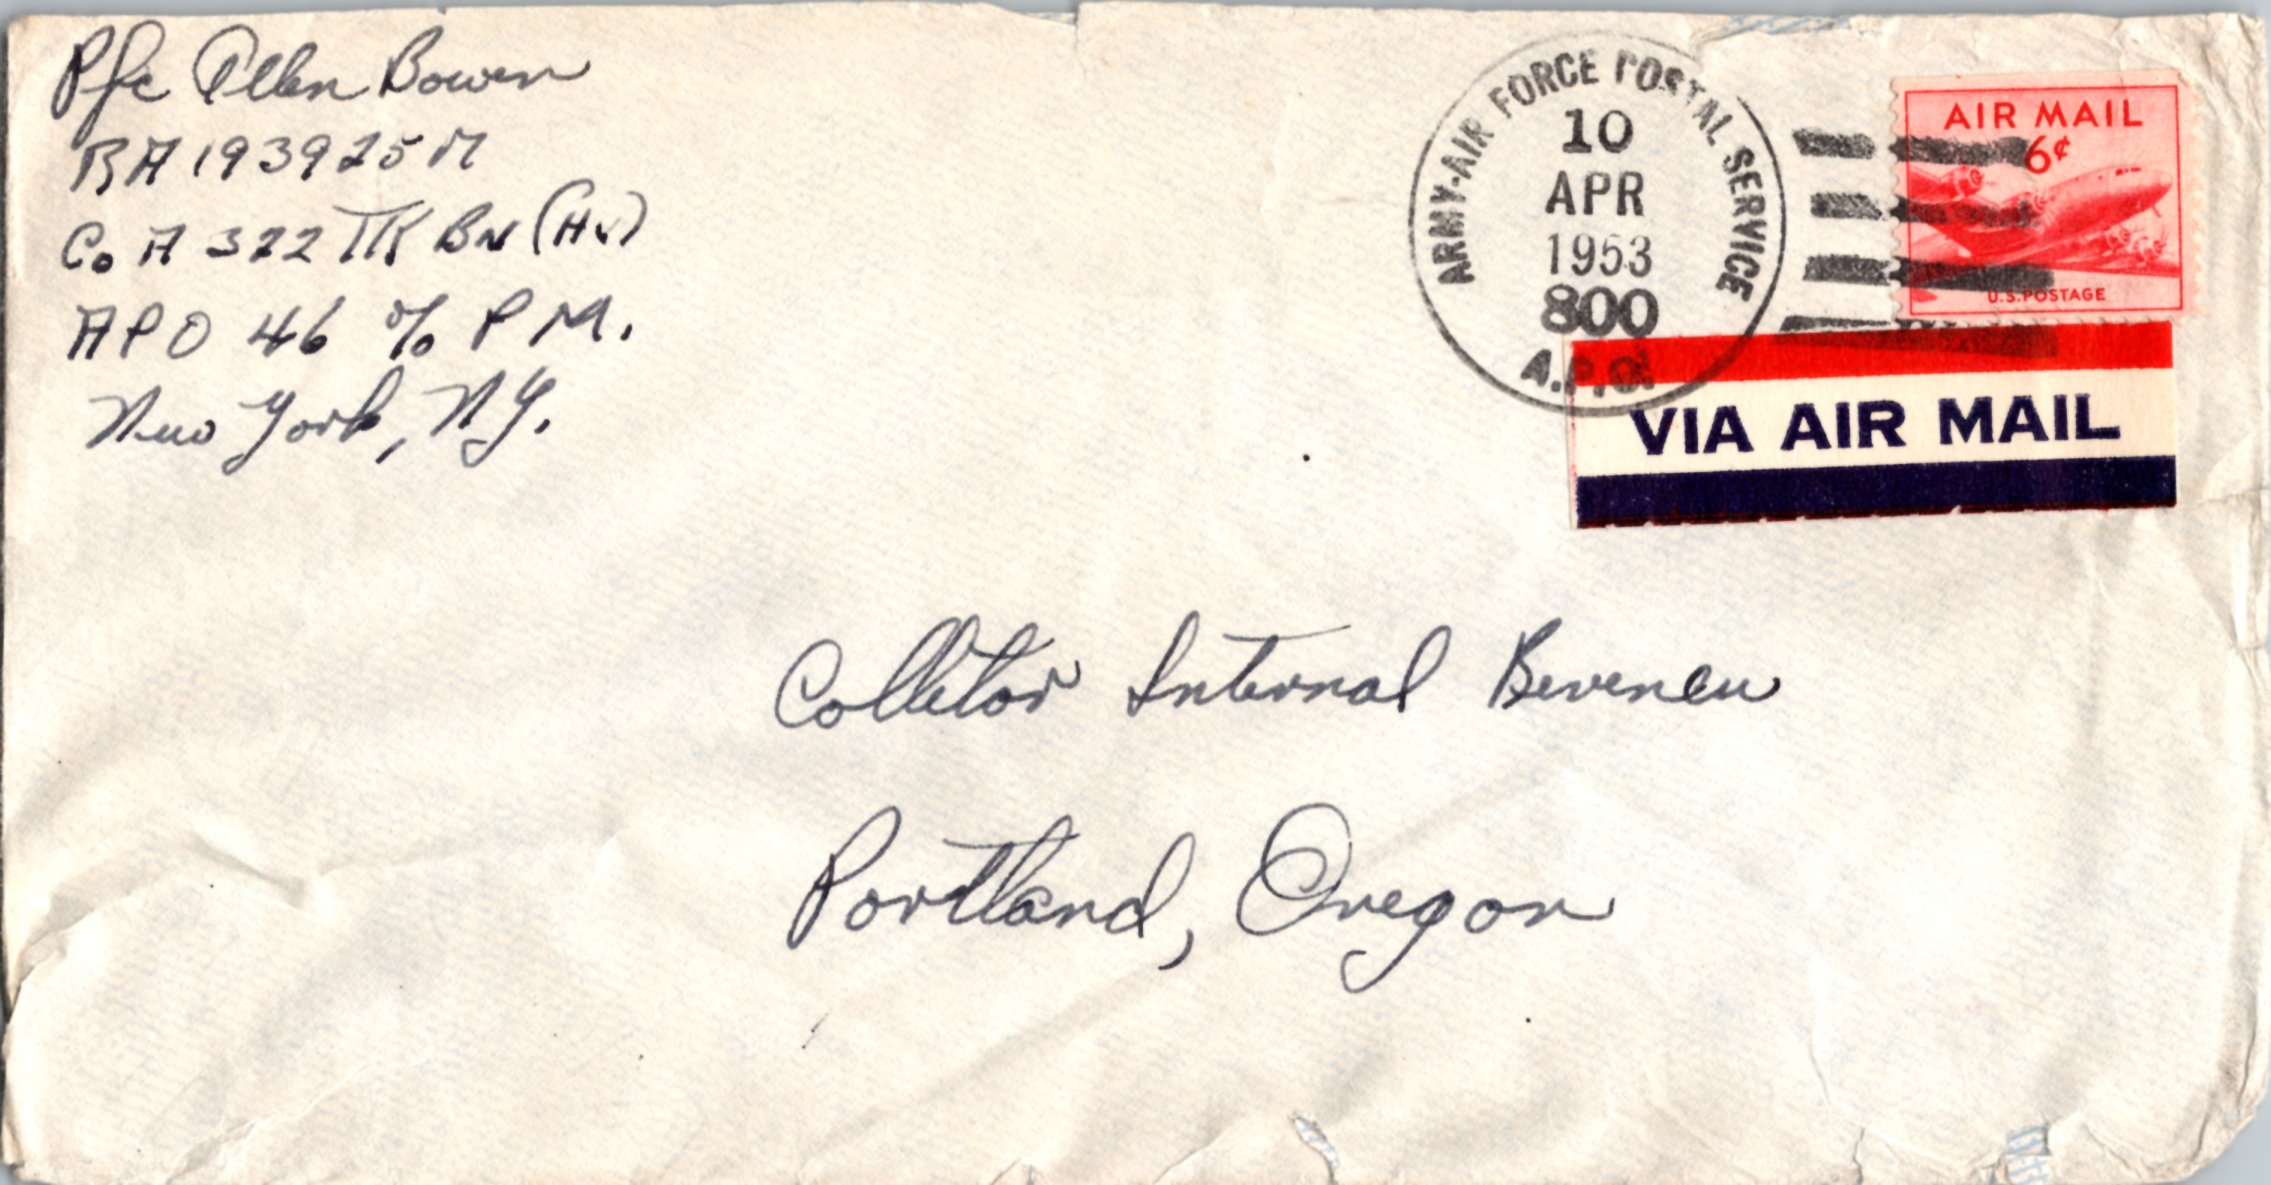 Pfc Allen Bowen
RA 193925
Co A 322 TK BN (Hv)
APO 46 % P M.
New York, NY.
ARMY-AIR FORCE POSTAL SERVICE
10
APR
1953
800
A.P.O.
AIR MAIL
6¢
U.S. POSTAGE
VIA AIR MAIL
Colletor Internal Reveneu
Portland, Oregon